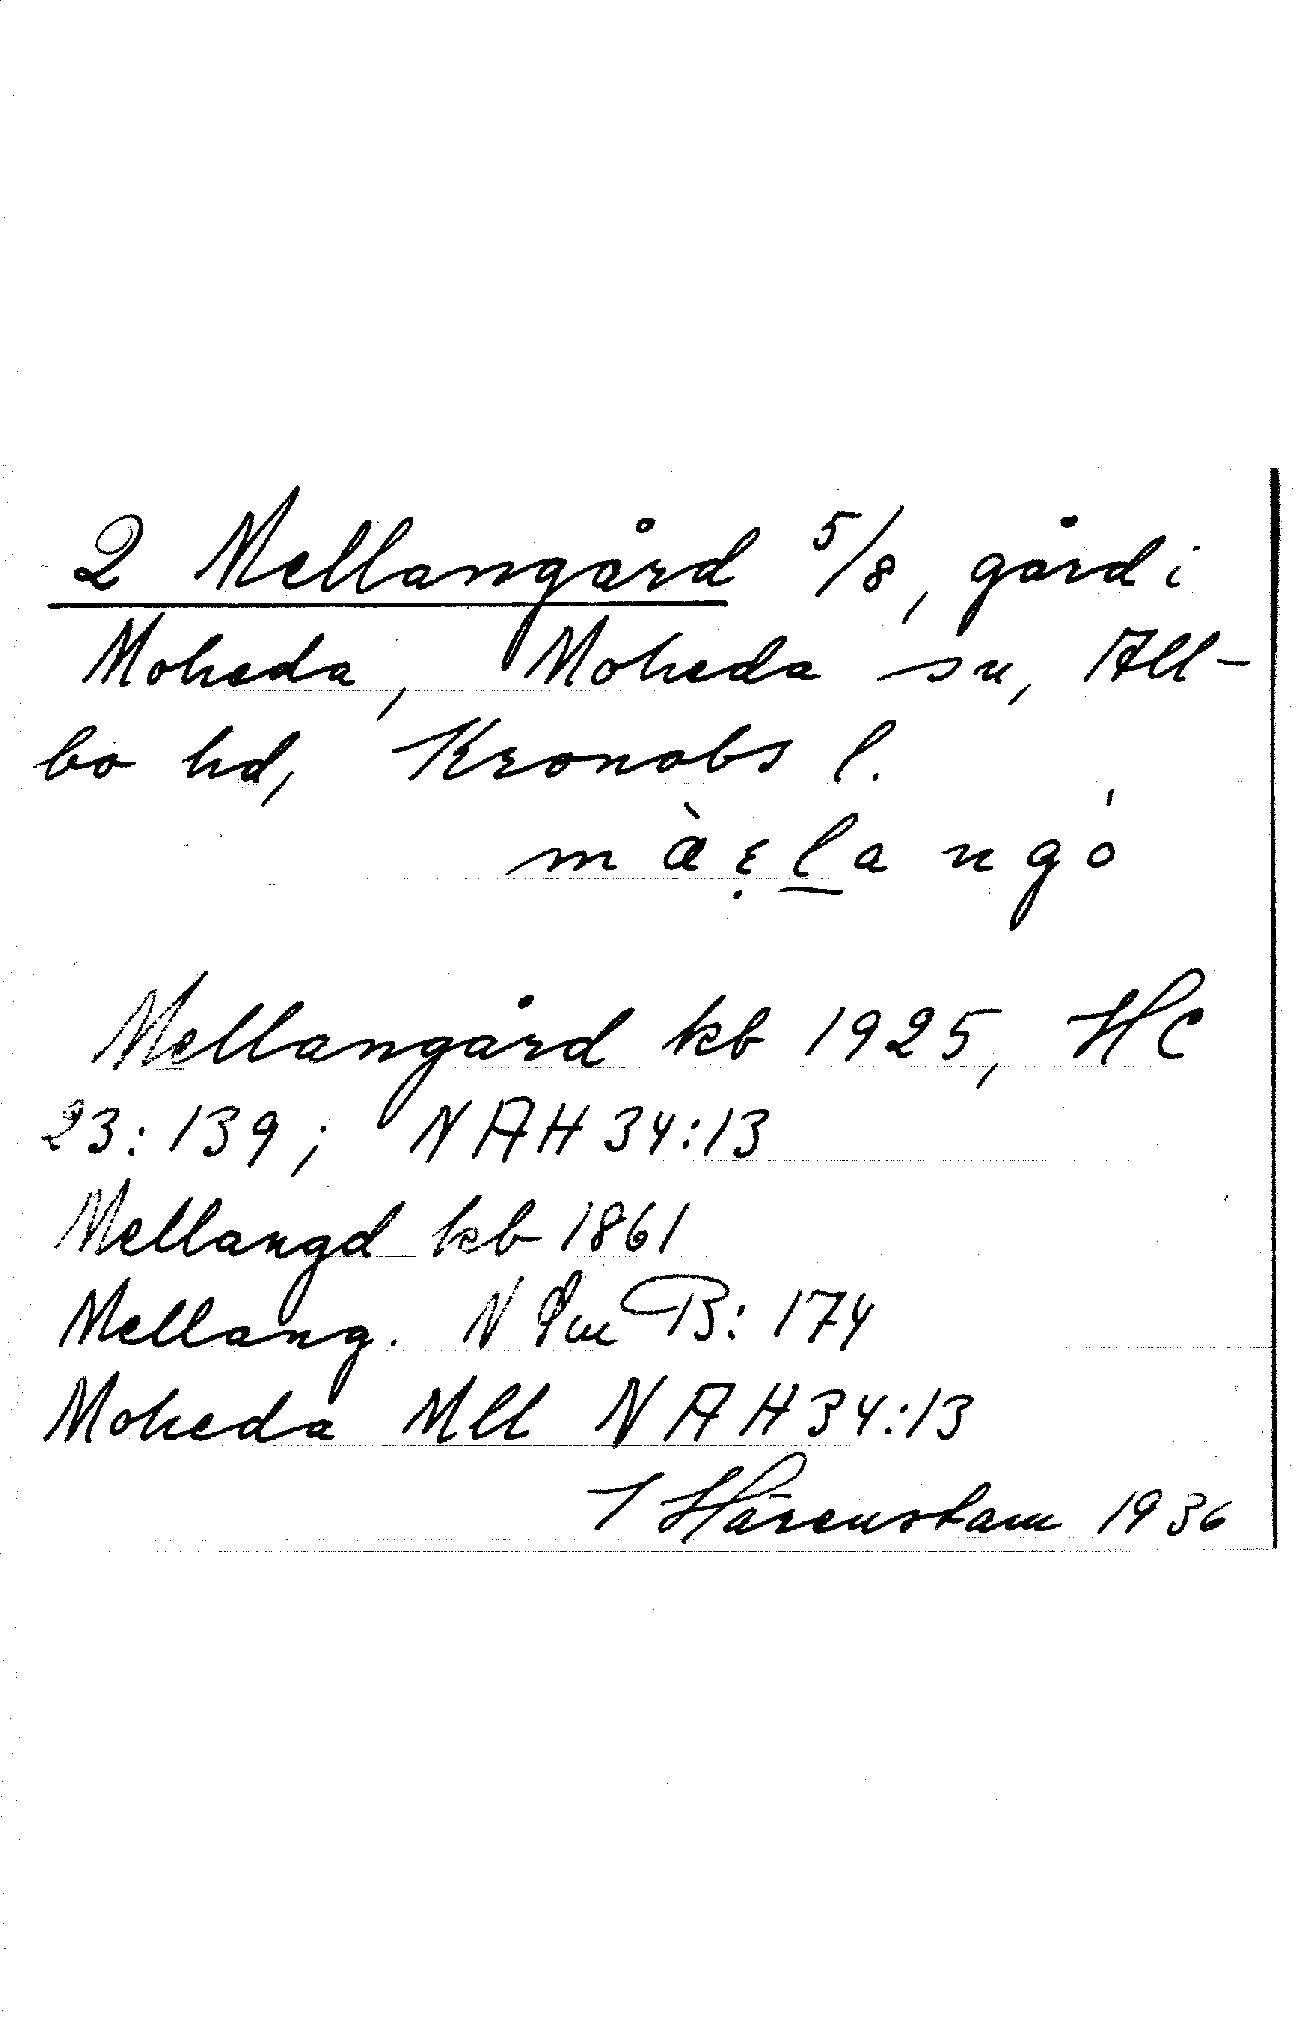 2 Mellangård 5/8, gård i
Moheda, Moheda sn, All-
bo hd, Kronobs l.
màɛ̣l̲angó
Mellangård kb 1925, HC
23:139; NAH34:13
Mellangd kb 1861
Mellang. N B:174
Moheda Mll NAH34:13
I Härenstam 1936